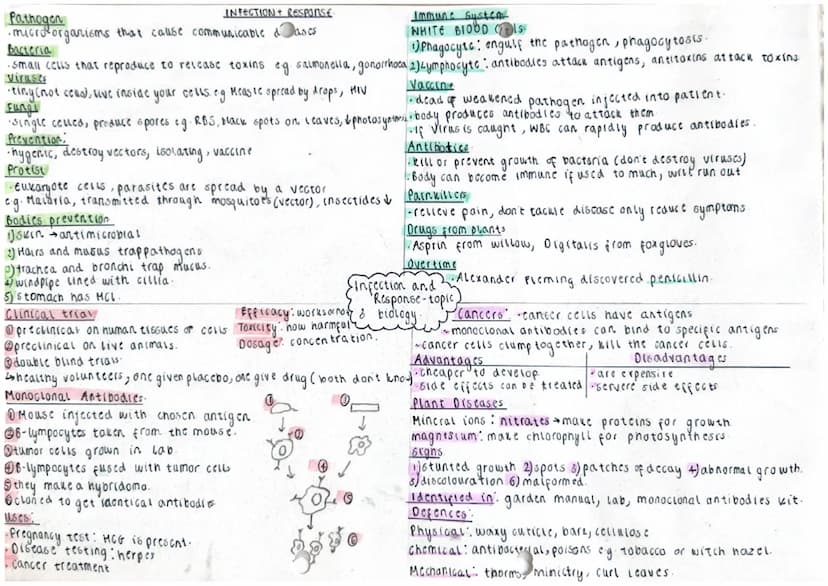 INFECTION + RESPONSE
Pathogen
· microorganisms that cause communicable
Bacteria
· small cells that reproduce to release toxins eg salmonella, gonorrhoea
Viruses
· tiny (not cells), live inside your cells eg Measle spread by drops, HIV
Fungi
· single celled, produce spores eg. RBS, black spots on leaves, ↓photosynthesis
Prevention:
· hygenic, destroy vectors, isolating, vaccine
Protist
· eukaryote cells, parasites are spread by a vector
e.g. Malaria, transmitted through mosquitoes (vector), insectides ↓
Bodies prevention
1) skin → antimicrobial
2) Hairs and mucus trap pathogens
3) trachea and bronchi trap mucus.
4) windpipe lined with cillia.
5) stomach has HCL.
Immune System
WHITE BLOOD
1) Phagocyte: engulf the pathogen, phagocytosis.
2) Lymphocyte: antibodies attack antigens, antitoxins attack toxins
Vaccine
· dead of weakened pathogen injected into patient.
· body produces antibodies to attack them
· If virus is caught, WBC can rapidly produce antibodies.
Antibodies
· kill or prevent growth of bacteria (don't destroy viruses)
· Body can become immune if used to much, will run out
Painkillers
· relieve pain, don't tackle disease only reduce symptoms.
Drugs from plants
· Asprin from willow, Digitalis from foxgloves.
Overtime
· Alexander Fleming discovered penicillin.
Infection and
Response - topic
3 biology.
Clinical trial
① preclinical on human tissues or cells
② preclinical on live animals.
③ double blind trials
↳ healthy volunteers, one given placebo, one give drug (both don't know
Efficacy: works or not
Toxicity: how harmful
Dosage: concentration.
Monoclonal Antibodies
① Mouse injected with chosen antigen
② B-lympocytes taken from the mouse.
③ tumor cells grown in lab
④ B-lympocytes fused with tumor cells
⑤ they make a hybridoma.
⑥ cloned to get identical antibodie
① ③
②
④
⑤
⑥
Uses:
· Pregnancy test: HCG is present.
· Disease testing: herpes
· cancer treatment
Cancers: · cancer cells have antigens
~ monoclonal antibodies can bind to specific antigens
~ cancer cells clump together, kill the cancer cells.
Advantages Disadvantages
· cheaper to develop · are expensive
· side effects can be treated · servere side effects
Plant Diseases
Mineral ions: nitrates → make proteins for growth
magnesium: make chlorophyll for photosynthesis.
signs
1) stunted growth 2) spots 3) patches of decay 4) abnormal growth.
5) discolouration 6) malformed.
Identified in: garden manual, lab, monoclonal antibodies kit.
Defences:
Physical: waxy cuticle, bark, cellulose
Chemical: antibacterial, poisons e.g. tobacco or witch hazel.
Mechanical: thorns, mimicry, curl leaves.